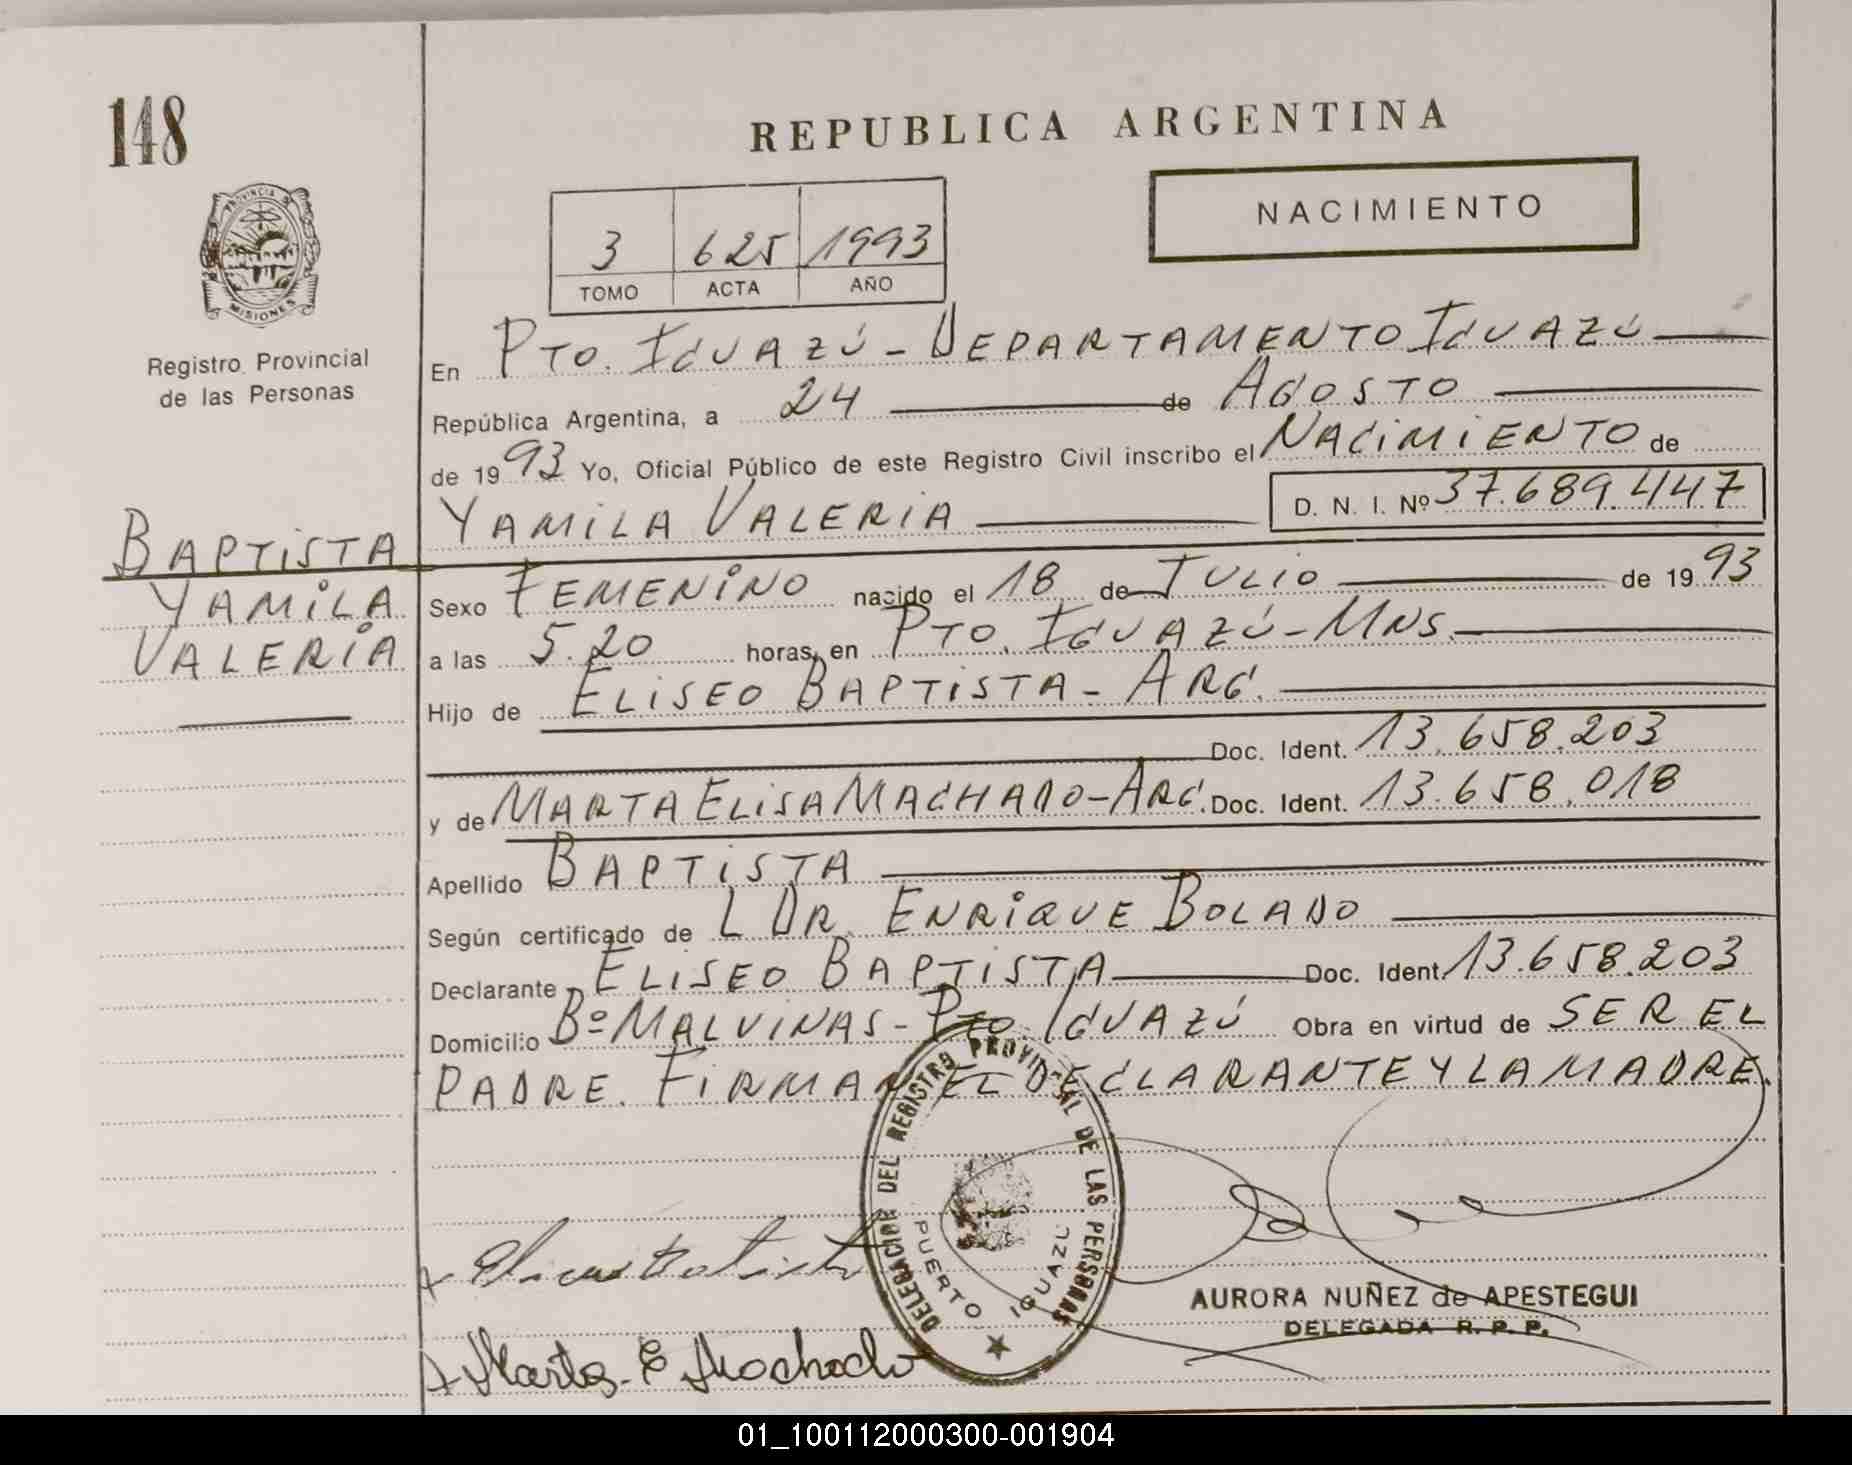 148
REPUBLICA ARGENTINA
NACIMIENTO
3 625 1993
TOMO ACTA AÑO
PROVINCIA DE
MISIONES
Registro Provincial
de las Personas
En PTO. IGUAZÚ - DEPARTAMENTO IGUAZÚ
República Argentina, a 24 de AGOSTO
de 1993 Yo, Oficial Público de este Registro Civil inscribo el NACIMIENTO de
YAMILA VALERIA D. N. I. Nº 37.689.447
BAPTISTA
YAMILA
VALERIA
Sexo FEMENINO nacido el 18 de JULIO de 1993
a las 5.20 horas, en PTO. IGUAZÚ - MNS.
Hijo de ELISEO BAPTISTA - ARG.
Doc. Ident. 13.658.203
y de MARTA ELISA MACHADO - ARG. Doc. Ident. 13.658.018
Apellido BAPTISTA
Según certificado de L DR. ENRIQUE BOLADO
Declarante ELISEO BAPTISTA Doc. Ident. 13.658.203
Domicilio Bº MALVINAS - PTO IGUAZÚ Obra en virtud de SER EL
PADRE. FIRMAN EL DECLARANTE Y LA MADRE.
DELEGACION DEL REGISTRO PROVINCIAL DE LAS PERSONAS
PUERTO IGUAZU
AURORA NUÑEZ de APESTEGUI
DELEGADA R. P. P.
Marta E Machado
01_100112000300-001904